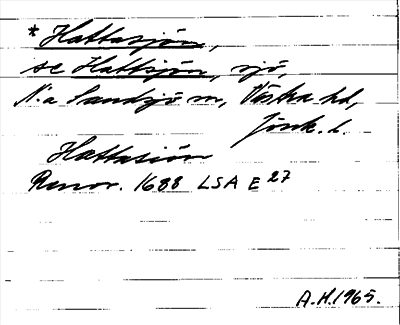 * Hattasjön,
se Hattsjön, sjö,
N:a Sandsjö sn, Västra hd,
Jönk. l.
Hattasiön
Renov. 1688 LSA E 27
A.H. 1965.